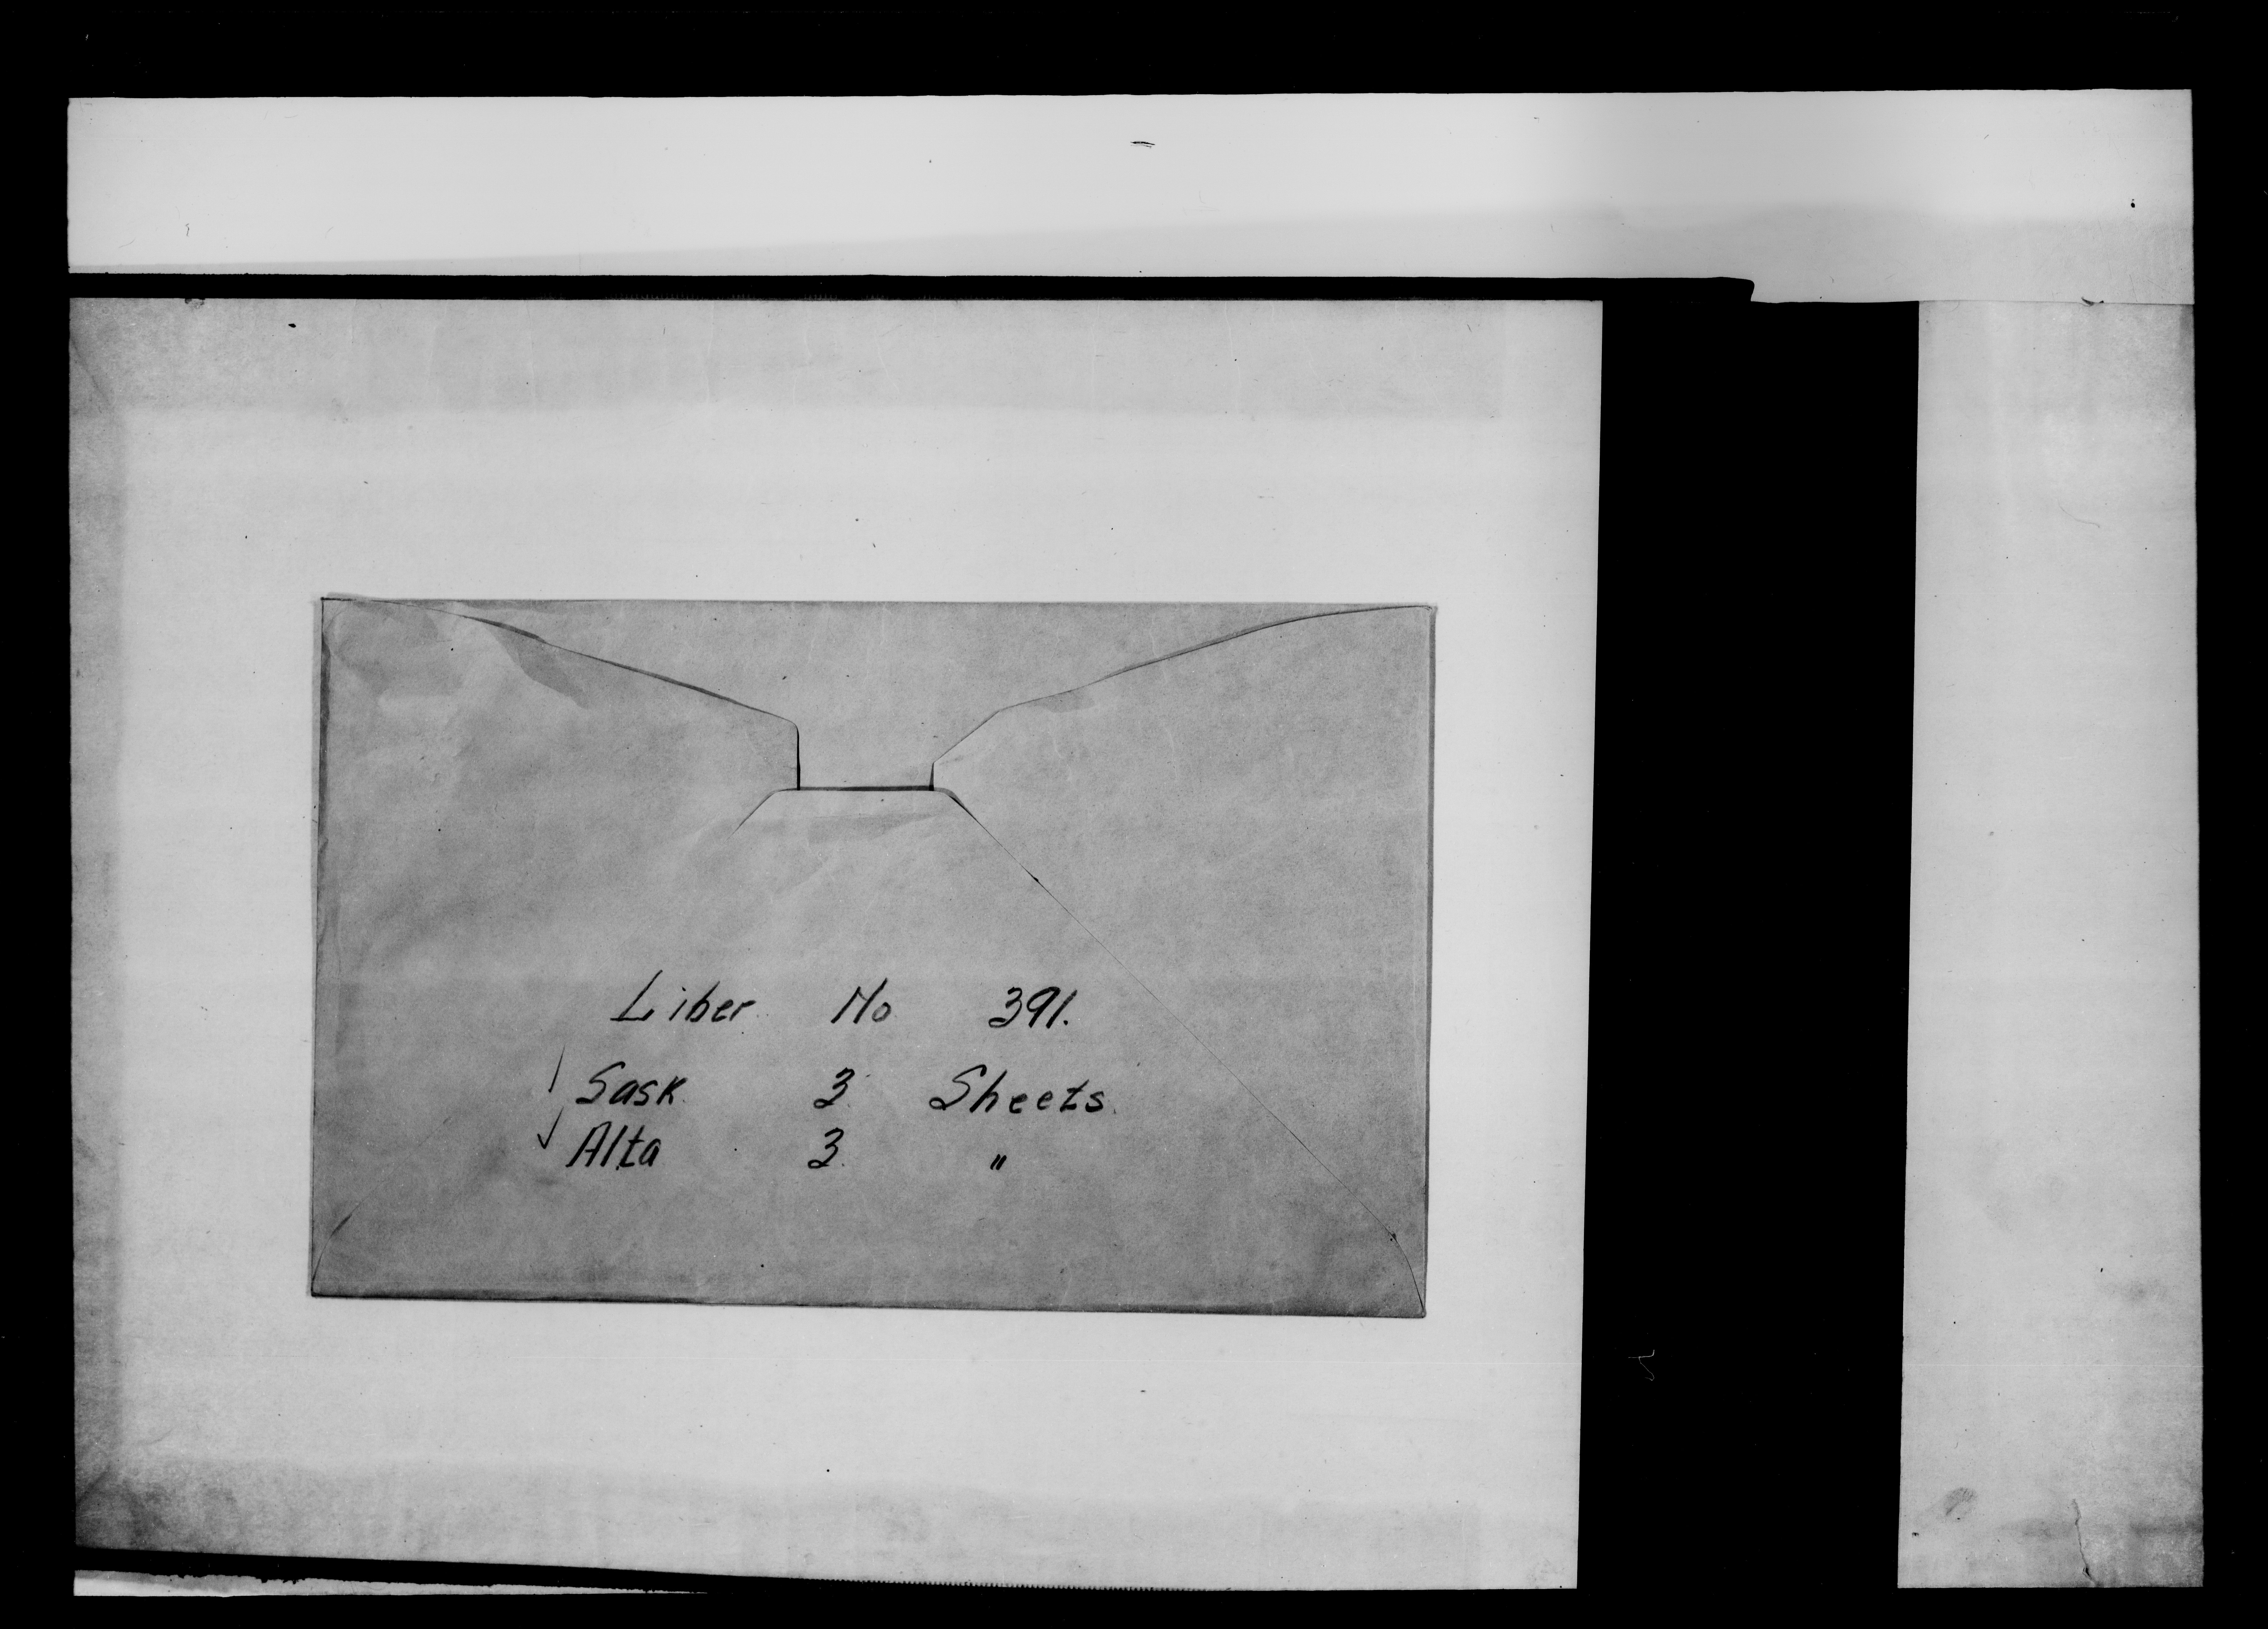 Liber No 391.
Sask. 3 Sheets.
Alta 3. "